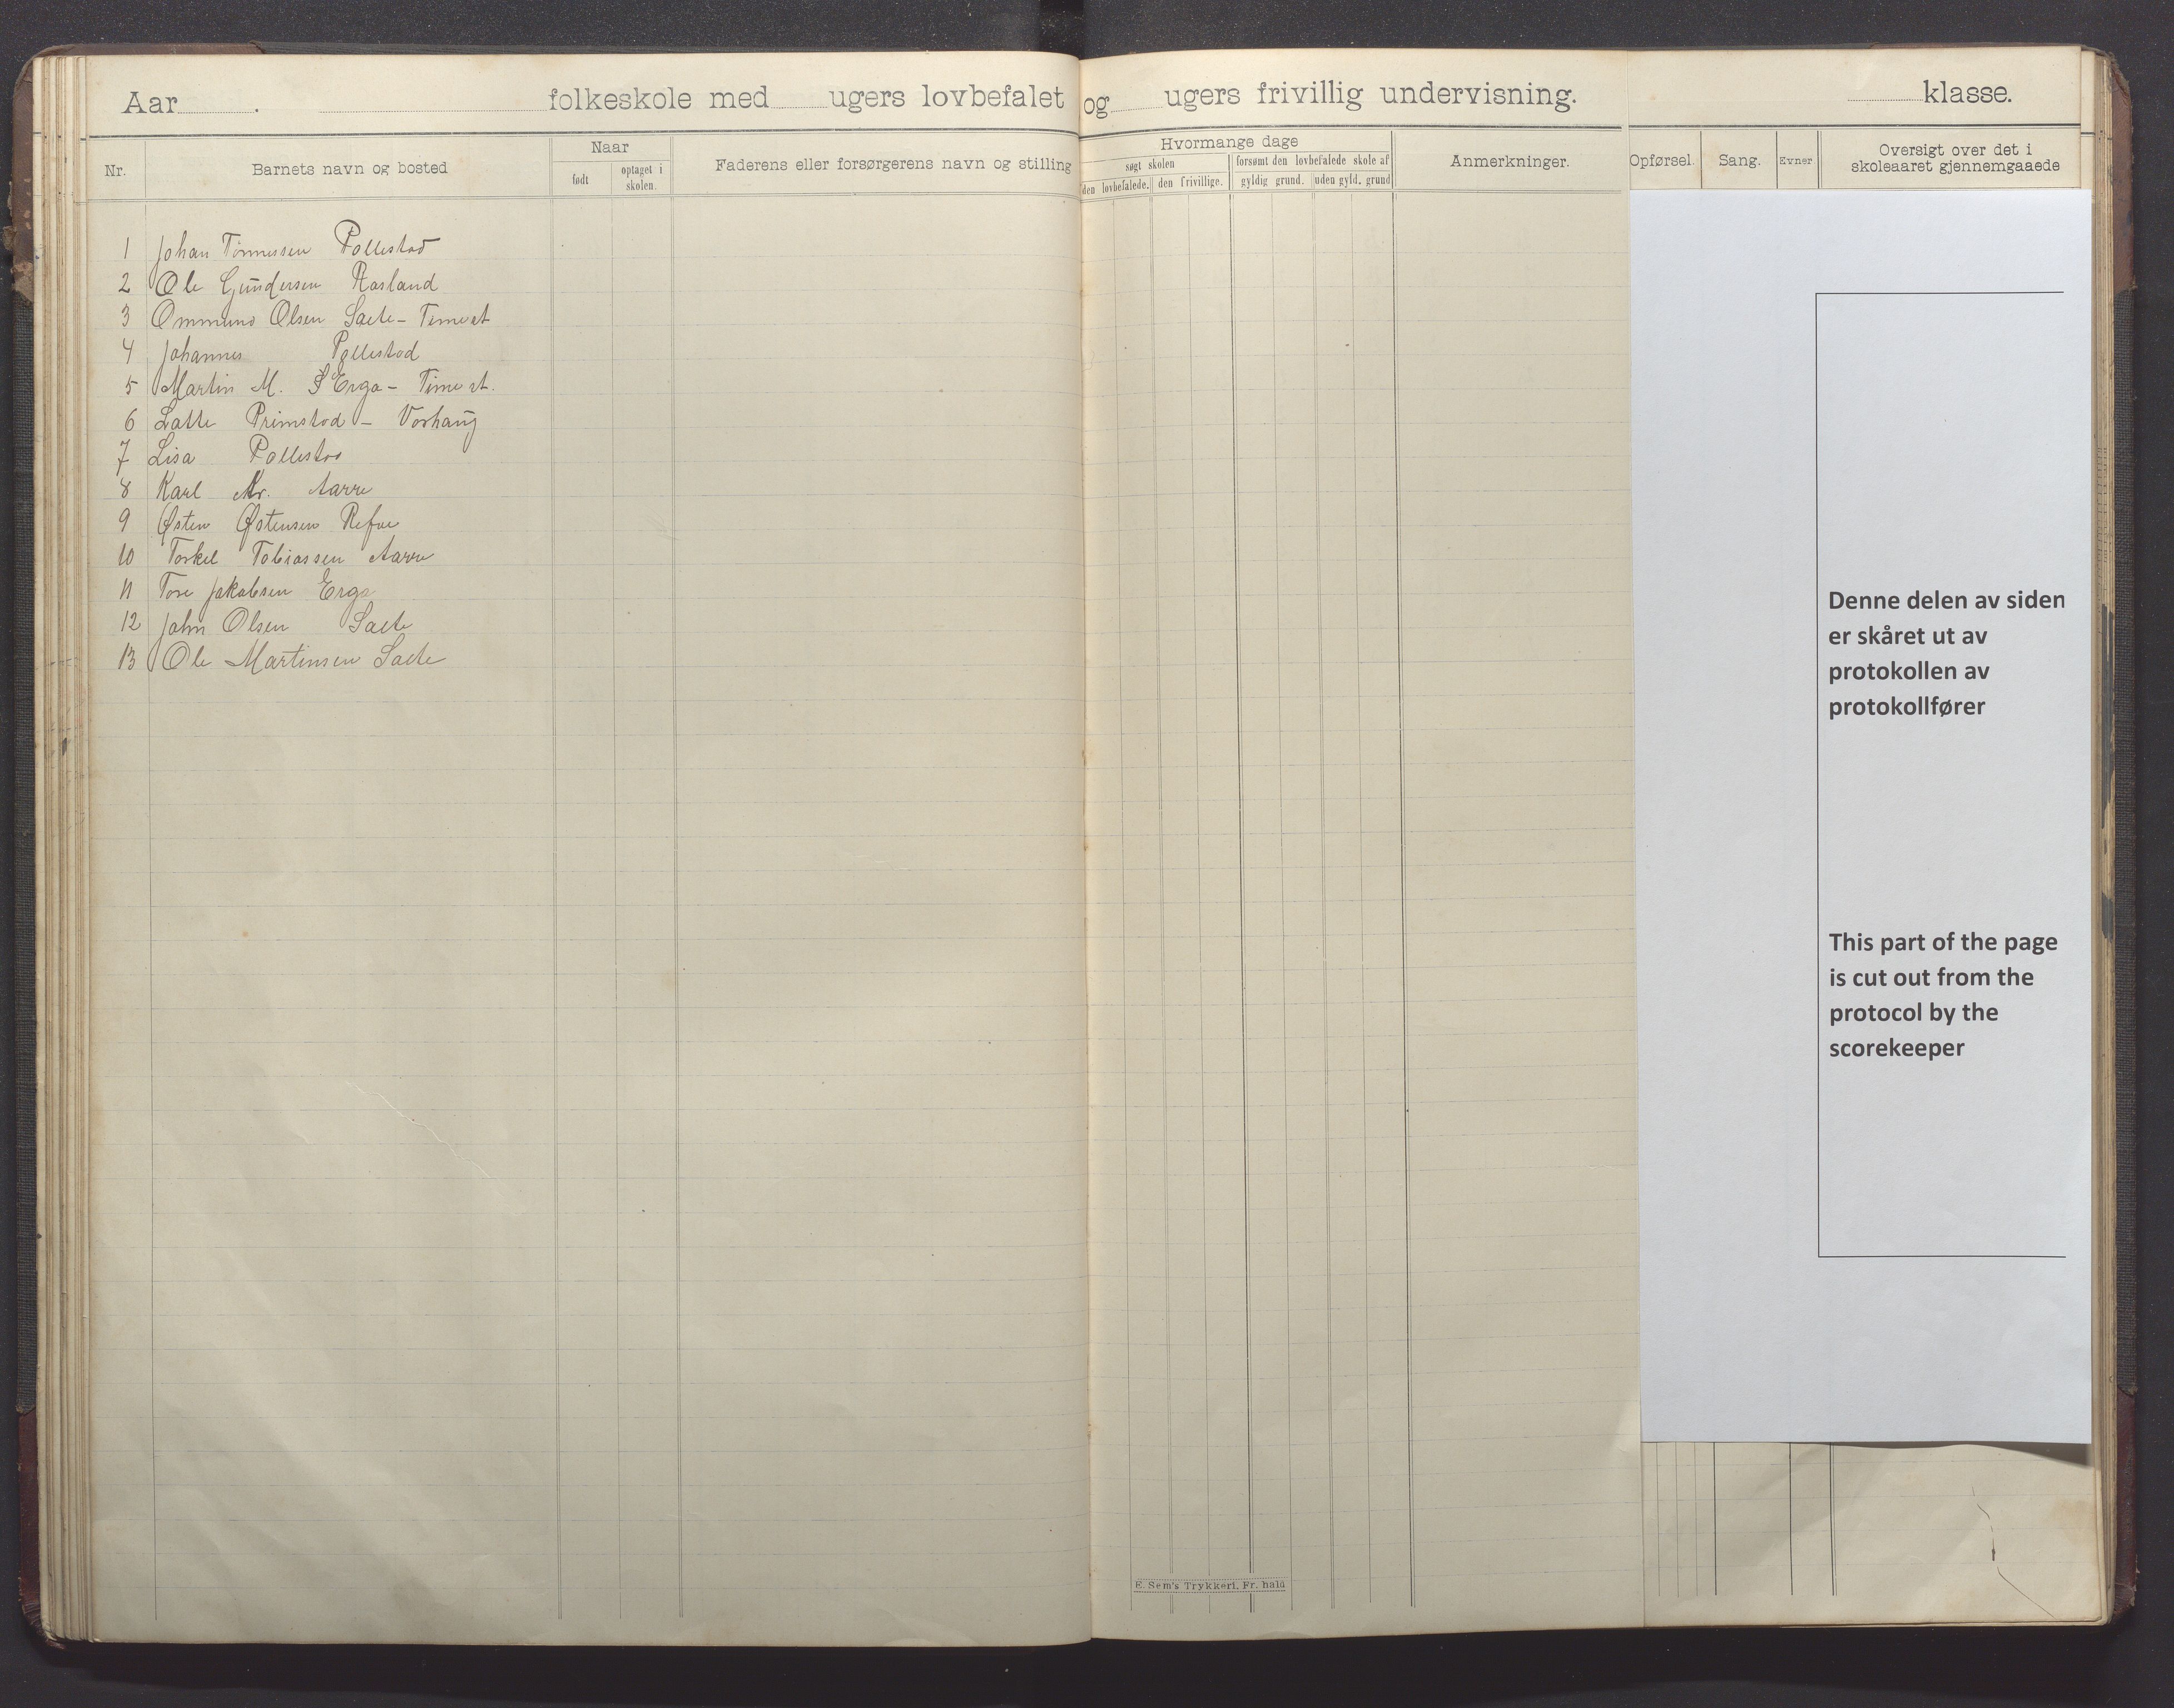 Aar . folkeskole med ugers lovbefalet og ugers frivillig undervisning. klasse.
Nr.
Barnets navn og bosted
Naar
født
optaget i
skolen.
Faderens eller forsørgerens navn og stilling
Hvormange dage
søgt skolen
forsømt den lovbefalede skole af
den lovbefalede.
den frivillige.
gyldig grund.
uden gyld. grund
Anmerkninger.
Opførsel.
Sang.
Evner
Oversigt over det i
skoleaaret gjennemgaaede
1 Johan Tønnessen Pollestad
2 Ole Gundersen Rosland
3 Ommund Olsen Saele - Time st
4 Johannes Pollestad
5 Martin M. Erga - Time st.
6 Lalle Primstad - Vorhaug
7 Lisa Pollestad
8 Karl Kr. Aarre
9 Østen Østensen Refue
10 Torkel Tobiassen Aarre
11 Tore Jakobsen Erga
12 John Olsen Saele
13 Ole Martinsen Saele
Denne delen av siden
er skåret ut av
protokollen av
protokollfører
This part of the page
is cut out from the
protocol by the
scorekeeper
E. Sem's Trykkeri, Fr. hald